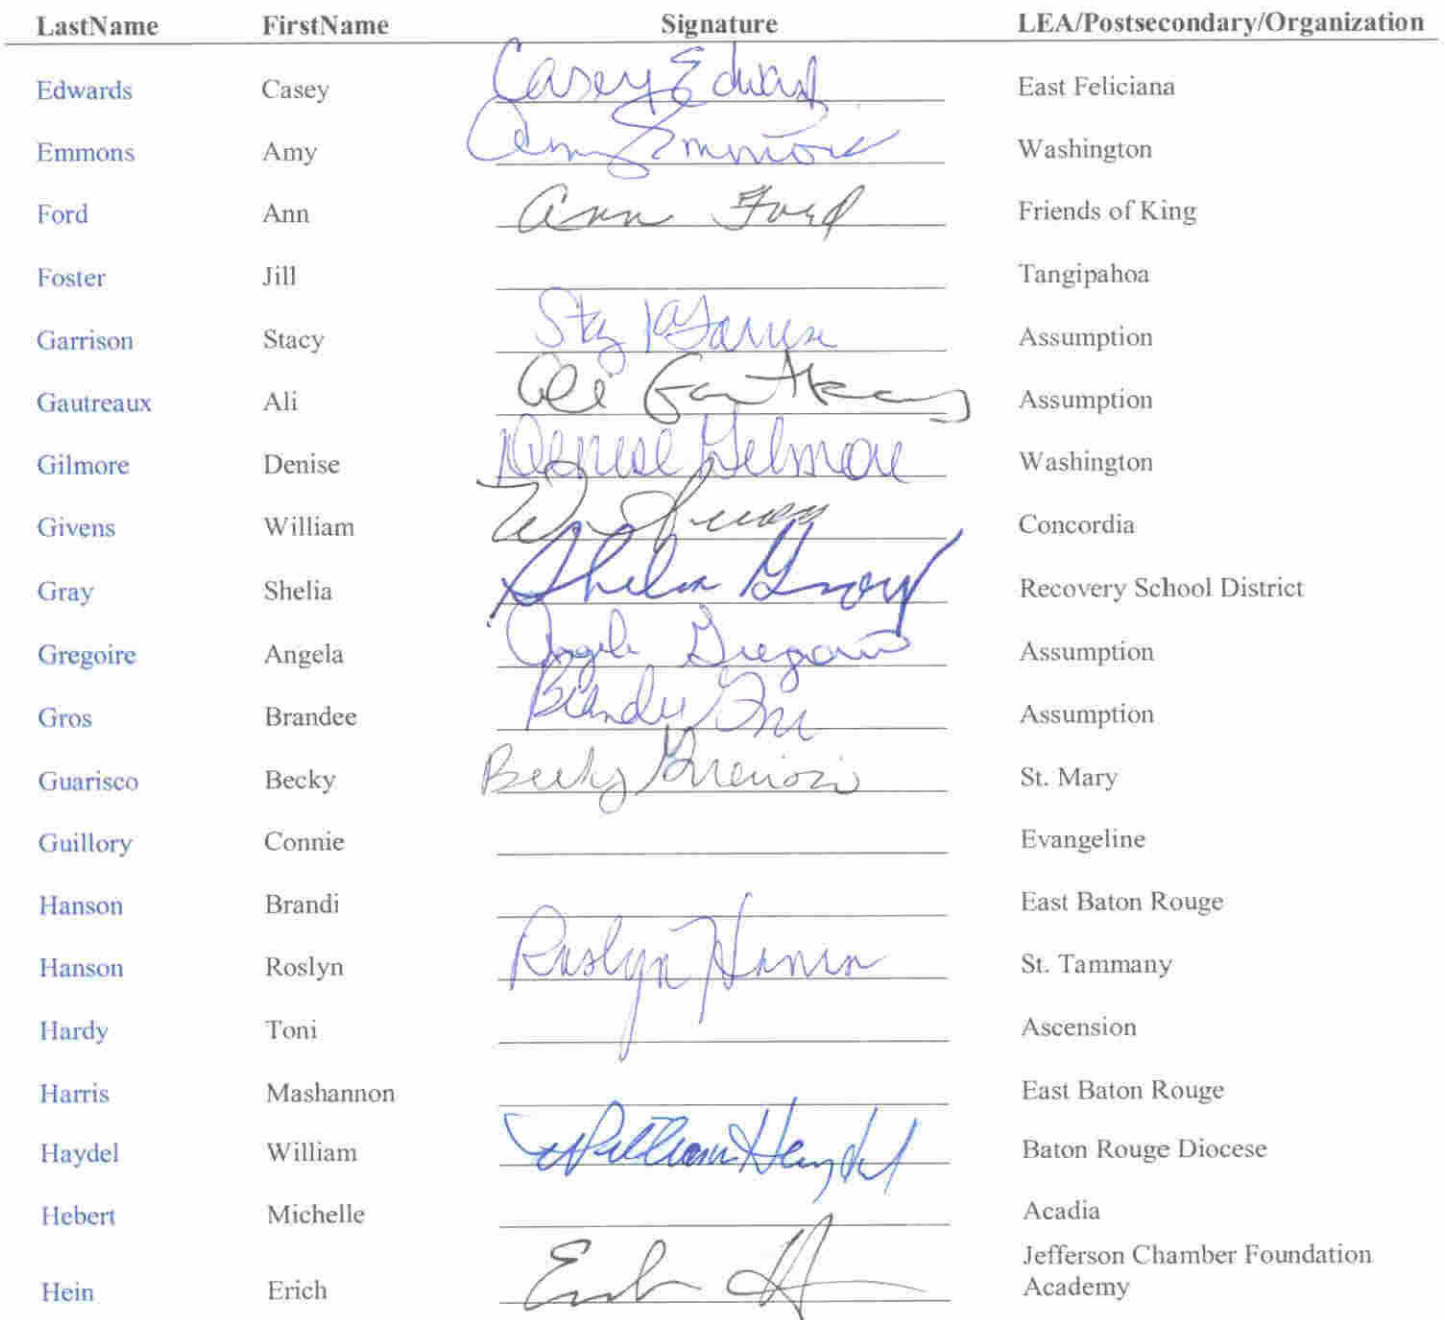 LastName FirstName Signature LEA/Postsecondary/Organization
Edwards Casey Casey Edwards East Feliciana
Emmons Amy Amy Emmons Washington
Ford Ann Ann Ford Friends of King
Foster Jill Tangipahoa
Garrison Stacy Assumption
Gautreaux Ali Ali Assumption
Gilmore Denise Denise Gilmore Washington
Givens William W. Givens Concordia
Gray Shelia Shelia Gray Recovery School District
Gregoire Angela Angela Gregoire Assumption
Gros Brandee Brandee Assumption
Guarisco Becky Becky St. Mary
Guillory Connie Evangeline
Hanson Brandi East Baton Rouge
Hanson Roslyn Roslyn Hanson St. Tammany
Hardy Toni Ascension
Harris Mashannon East Baton Rouge
Haydel William William Haydel Baton Rouge Diocese
Hebert Michelle Acadia
Jefferson Chamber Foundation
Hein Erich Academy